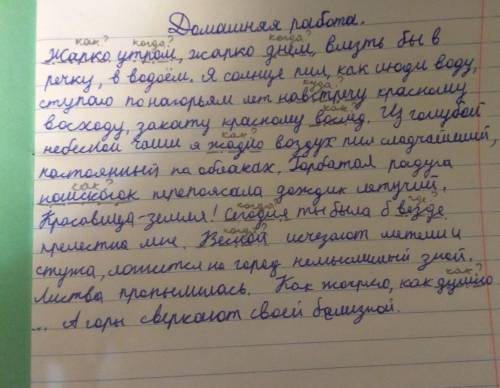 Домашняя работа.
как? когда? как? когда?
Жарко утром, жарко днём, влезть бы в
речку, в водоём. Я солнце пил, как люди воду,
куда?
ступало по нагорьям лет навстречу красному
как?
восходу, закату красному вослед. Из голубой
как?
небесной чаши я жадно воздух пил сладчайший,
настоянный на облаках. Горбатая радуга
как?
наискосок перепоясала дождик летучий.
когда? где?
Красавица-земля! Сегодня ты была б везде
когда?
прелестна мне. Весной исчезают метели и
стужа, ложится на город немыслимый зной.
как?
Листва пропылилась. Как жарко, как душно
... А горы сверкают своей белизной.